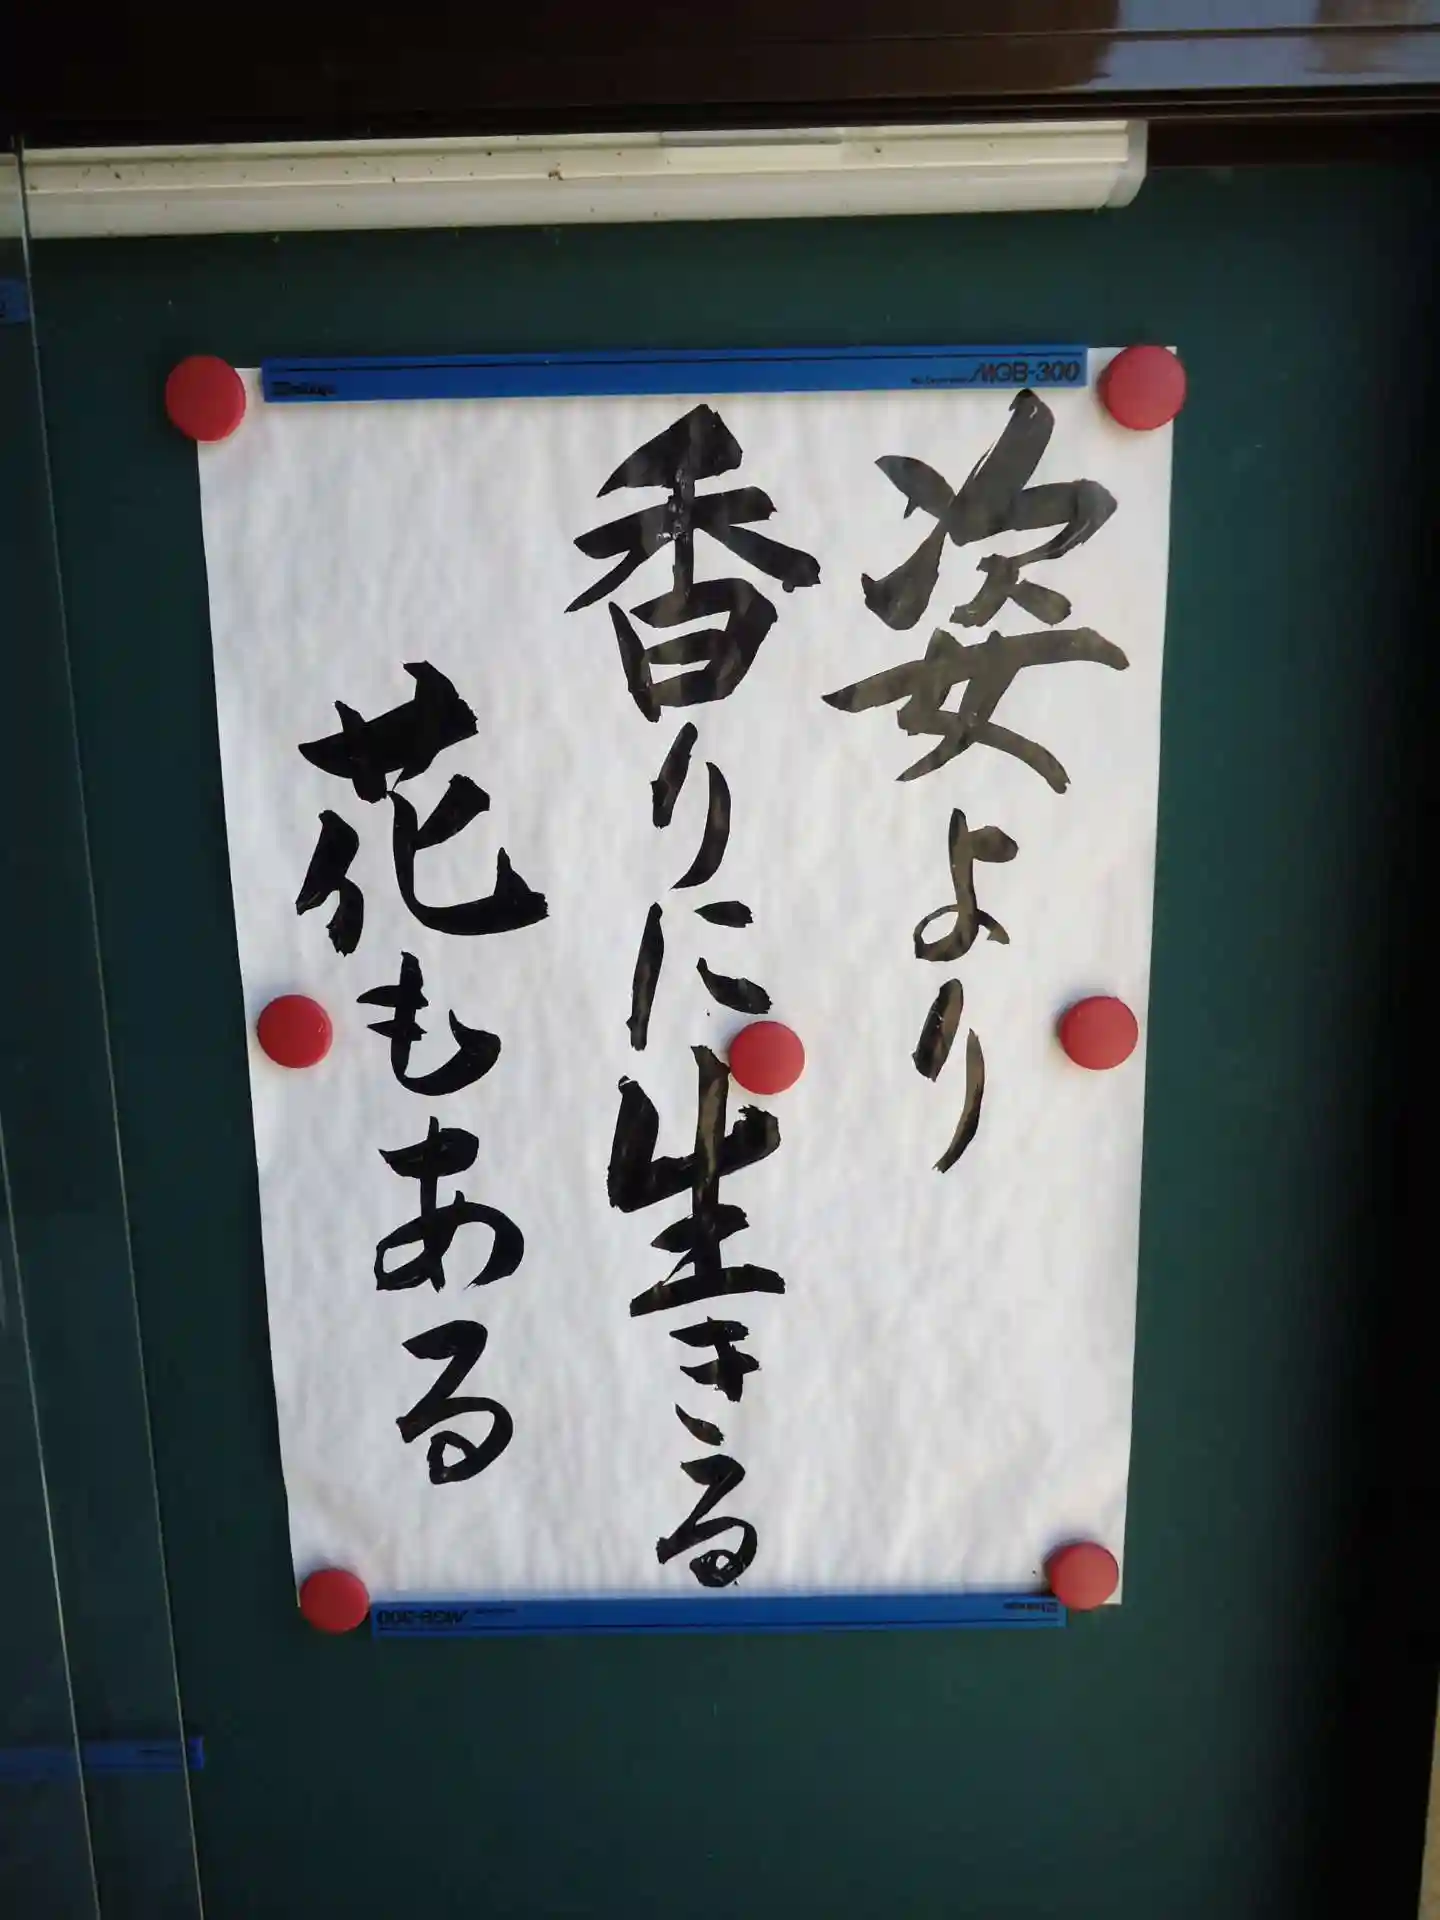 姿より
香りに生きる
花もある
MGB-300
MGB-300